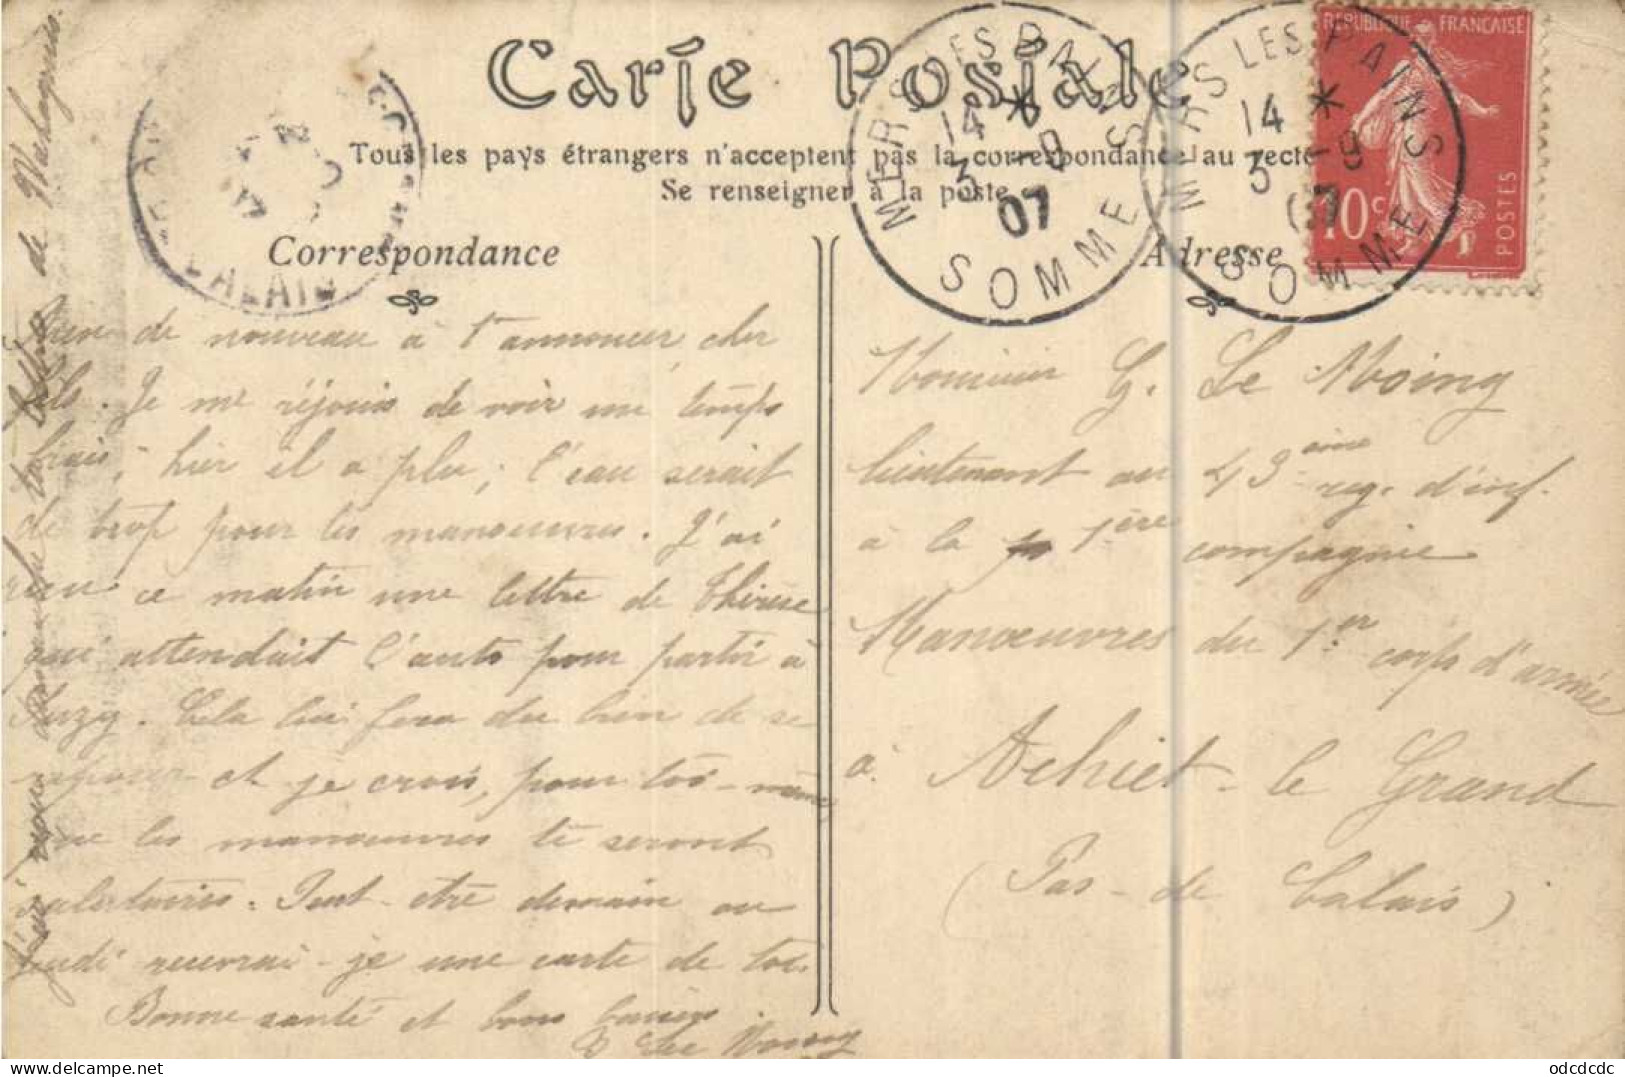 Carte Postale
Tous les pays étrangers n'acceptent pas la correspondance au recto
Se renseigner à la poste
Correspondance
Adresse
MERS LES BAINS
14 * 3 - 9
07
SOMME
MERS LES BAINS
14 * 3 - 9
07
SOMME
REPUBLIQUE FRANÇAISE
10 c
POSTES
CALAIS
Rien de nouveau à t'annoncer, cher
fils. Je me réjouis de voir un temps
frais; hier il a plu; l'eau serait
de trop pour les manoeuvres. J'ai
reçu ce matin une lettre de Thérèse
qui attendait l'auto pour partir à
Suzy. Cela lui fera du bien de se
reposer et je crois, pour toi-même,
que les manoeuvres te seront
salutaires. Peut-être demain ou
jeudi recevrai-je une carte de toi.
Bonne santé et bons baisers
Le Moing
de
Monsieur G. Le Moing
lieutenant au 43ème reg. d'inf.
à la 1ère compagnie
Manoeuvres du 1er corps d'armée
à Achiet-le Grand
(Pas-de Calais)
odcdcdc